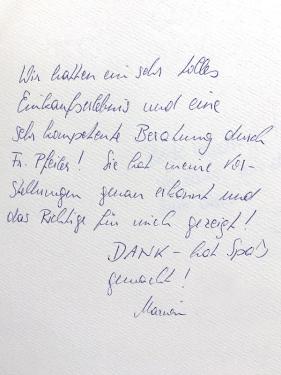 Wir hatten ein sehr tolles
Einkaufserlebnis und eine
sehr kompetente Beratung durch
Fr. Pfeifer! Sie hat meine Vor-
stellungen genau erkannt und
das Richtige für mich gezeigt!
DANK – hat Spaß
gemacht!